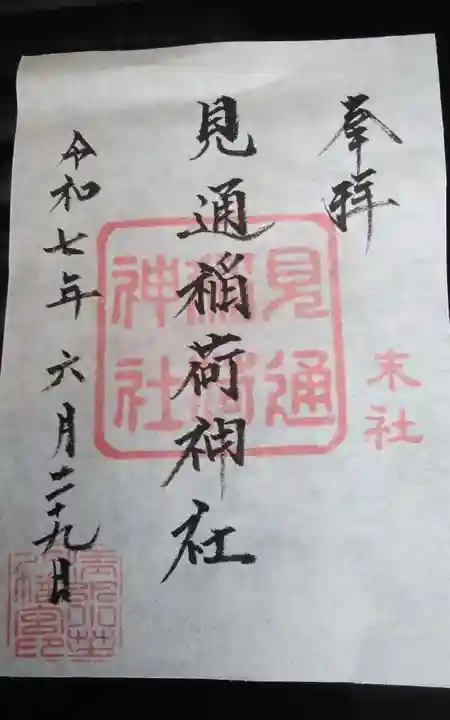 奉拝
末社
見通稲荷神社
見通
稲荷
神社
令和七年 六月二十九日